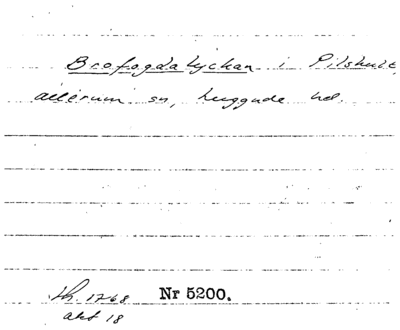 Brofogdalyckan i Pilshult,
Allerum sn, Luggude hd.
Lk. 1768 Nr 5200.
akt 18